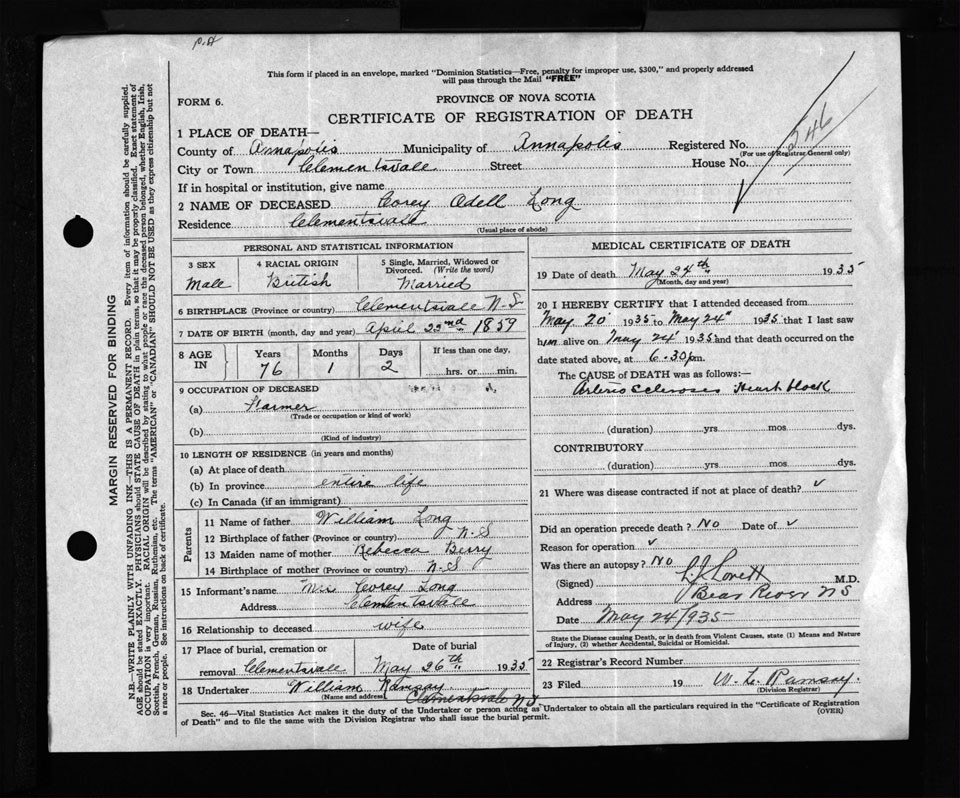 This form if placed in an envelope, marked "Dominion Statistics—Free, penalty for improper use, $300," and properly addressed
will pass through the Mail "FREE"
FORM 6.
PROVINCE OF NOVA SCOTIA
CERTIFICATE OF REGISTRATION OF DEATH
546
1 PLACE OF DEATH—
County of Annapolis Municipality of Annapolis Registered No.
(For use of Registrar General only)
City or Town Clementsvale Street House No.
If in hospital or institution, give name
2 NAME OF DECEASED Corey Odell Long
Residence Clementsvale
(Usual place of abode)
PERSONAL AND STATISTICAL INFORMATION
3 SEX 4 RACIAL ORIGIN 5 Single, Married, Widowed or Divorced. (Write the word)
Male British Married
6 BIRTHPLACE (Province or country) Clementsvale N.S
7 DATE OF BIRTH (month, day and year) April 22nd 1859
8 AGE IN Years Months Days If less than one day,
76 1 2 hrs. or min.
9 OCCUPATION OF DECEASED
(a) Farmer
(Trade or occupation or kind of work)
(b)
(Kind of industry)
10 LENGTH OF RESIDENCE (in years and months)
(a) At place of death
(b) In province entire life
(c) In Canada (if an immigrant)
Parents
11 Name of father William Long
12 Birthplace of father (Province or country) N.S
13 Maiden name of mother Rebecca Berry
14 Birthplace of mother (Province or country) N.S
15 Informant's name Mrs Corey Long
Address Clementsvale
16 Relationship to deceased wife
17 Place of burial, cremation or removal Clementsvale
Date of burial May 26th 1935
18 Undertaker William Ramsay
(Name and address) Clementsvale N.S.
MEDICAL CERTIFICATE OF DEATH
19 Date of death May 24th 1935
(Month, day and year)
20 I HEREBY CERTIFY that I attended deceased from
May 20 1935 to May 24" 1935 that I last saw
him alive on May 24 1935 and that death occurred on the
date stated above, at 6.30 pm.
The CAUSE of DEATH was as follows:—
Arterio Sclerosis Heart block
(duration) yrs mos dys.
CONTRIBUTORY
(duration) yrs mos dys.
21 Where was disease contracted if not at place of death? ✓
Did an operation precede death? No Date of ✓
Reason for operation ✓
Was there an autopsy? No
(Signed) L.J. Lovett M.D.
Address Bear River NS
Date May 24/935
State the Disease causing Death, or in death from Violent Causes, state (1) Means and Nature
of Injury, (2) whether Accidental, Suicidal or Homicidal.
22 Registrar's Record Number
23 Filed 19 W. L. Ramsay.
(Division Registrar)
Sec. 46—Vital Statistics Act makes it the duty of the Undertaker or person acting as Undertaker to obtain all the particulars required in the "Certificate of Registration
of Death" and to file the same with the Division Registrar who shall issue the burial permit.
(OVER)
MARGIN RESERVED FOR BINDING
N.B.—WRITE PLAINLY WITH UNFADING INK—THIS IS A PERMANENT RECORD. Every item of information should be carefully supplied.
AGE should be stated EXACTLY. PHYSICIANS should STATE CAUSE OF DEATH in plain terms, so that it may be properly classified. Exact statement of
OCCUPATION is very important. RACIAL ORIGIN will be described by stating to what people or race the deceased person belonged, whether English, Irish,
Scottish, French, German, Russian, Ruthenian, etc. The terms "AMERICAN" or "CANADIAN" SHOULD NOT BE USED as they express citizenship but not
a race or people. See instructions on back of certificate.